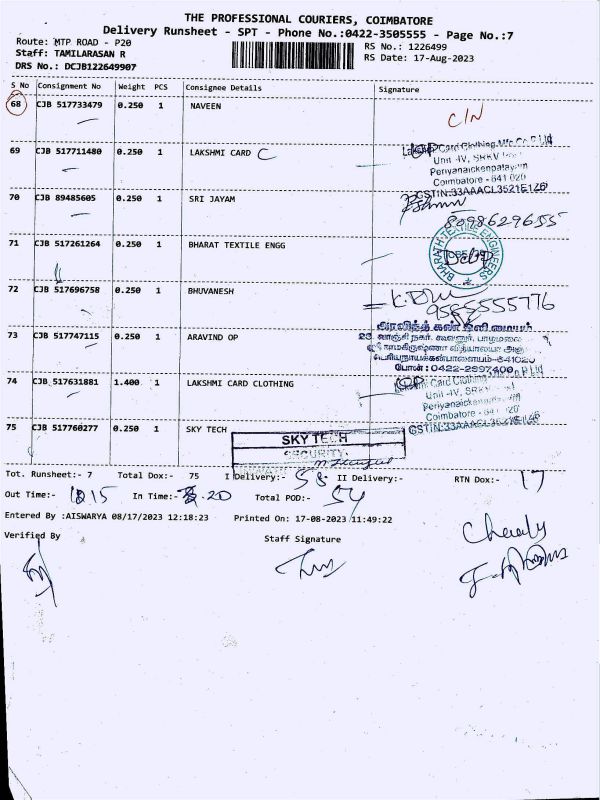 THE PROFESSIONAL COURIERS, COIMBATORE
Delivery Runsheet - SPT - Phone No.:0422-3505555 - Page No.:7
Route: MTP ROAD - P20
RS No.: 1226499
Staff: TAMILARASAN R
RS Date: 17-Aug-2023
DRS No.: DCJB122649907
S No Consignment No Weight PCS Consignee Details Signature
68 CJB 517733479 0.250 1 NAVEEN
C/N
69 CJB 517711480 0.250 1 LAKSHMI CARD C
Unit -IV, SRKV
Periyanaickenpalayam
Coimbatore - 641 020
GSTIN:33AAACL3521E1Z6
70 CJB 89485605 0.250 1 SRI JAYAM
8098629655
71 CJB 517261264 0.250 1 BHARAT TEXTILE ENGG
BHARATH TEXTILE ENGINEERS
72 CJB 517696758 0.250 1 BHUVANESH
73 CJB 517747115 0.250 1 ARAVIND OP
அரவிந்த் கண் ஒளி மையம்
போன் : 0422-2897400
74 CJB 517631881 1.400 1 LAKSHMI CARD CLOTHING
Unit -IV, SRKV
Periyanaickenpalayam
Coimbatore - 641 020
GSTIN:33AAACL3521E1Z6
75 CJB 517760277 0.250 1 SKY TECH
SKY TECH
SECURITY
Tot. Runsheet:- 7 Total Dox:- 75 I Delivery:- 58 II Delivery:- RTN Dox:- 17
Out Time:- In Time:- Total POD:- 54
Entered By :AISWARYA 08/17/2023 12:18:23 Printed On: 17-08-2023 11:49:22
Verified By Staff Signature